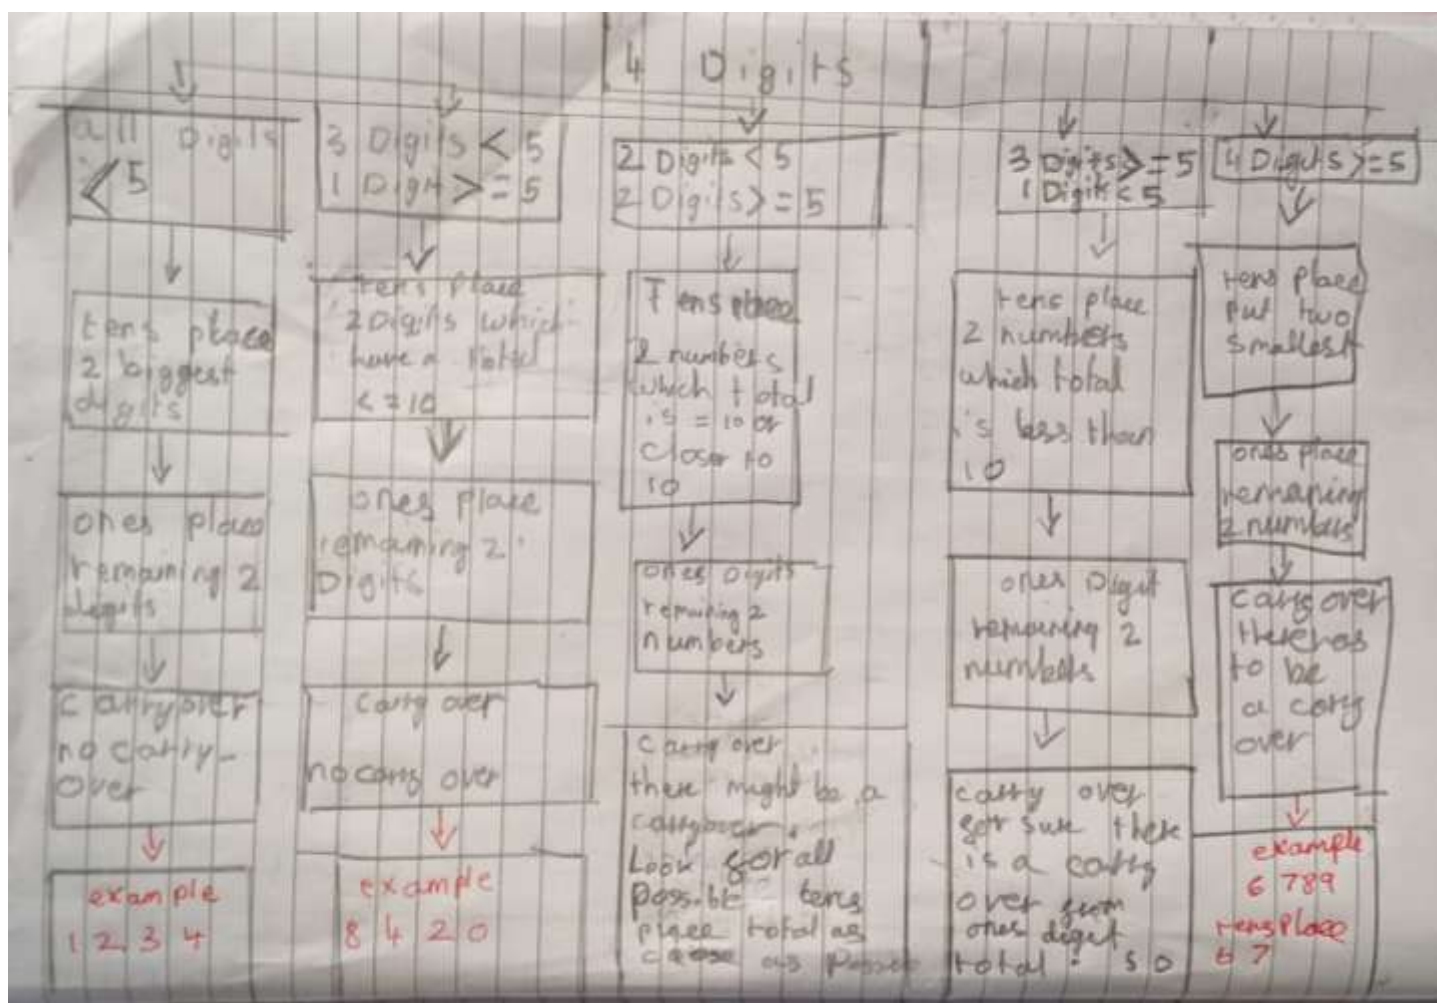 4 Digits
all Digits
< 5
tens place
2 biggest
digits
ones place
remaining 2
digits
carryover
no carry-
over
example
1 2 3 4
3 Digits < 5
1 Digit >= 5
tens place
2 Digits which
have a total
<=10
ones place
remaining 2
Digits
carry over
no carry over
example
8 4 2 0
2 Digits < 5
2 Digits >= 5
Tens place
2 numbers
which total
is = 10 or
closer to
10
ones Digits
remaining 2
numbers
carry over
there might be a
carryover.
Look for all
possible tens
place total as
close as possible
3 Digits >= 5
1 Digits < 5
tens place
2 numbers
which total
is less than
10
ones Digit
remaining 2
numbers
carry over
for sure there
is a carry
over from
ones digit
total
4 Digits >= 5
tens place
put two
smallest
ones place
remaning
2 numbers
carry over
there has
to be
a carry
over
example
6 789
tens place
6 7